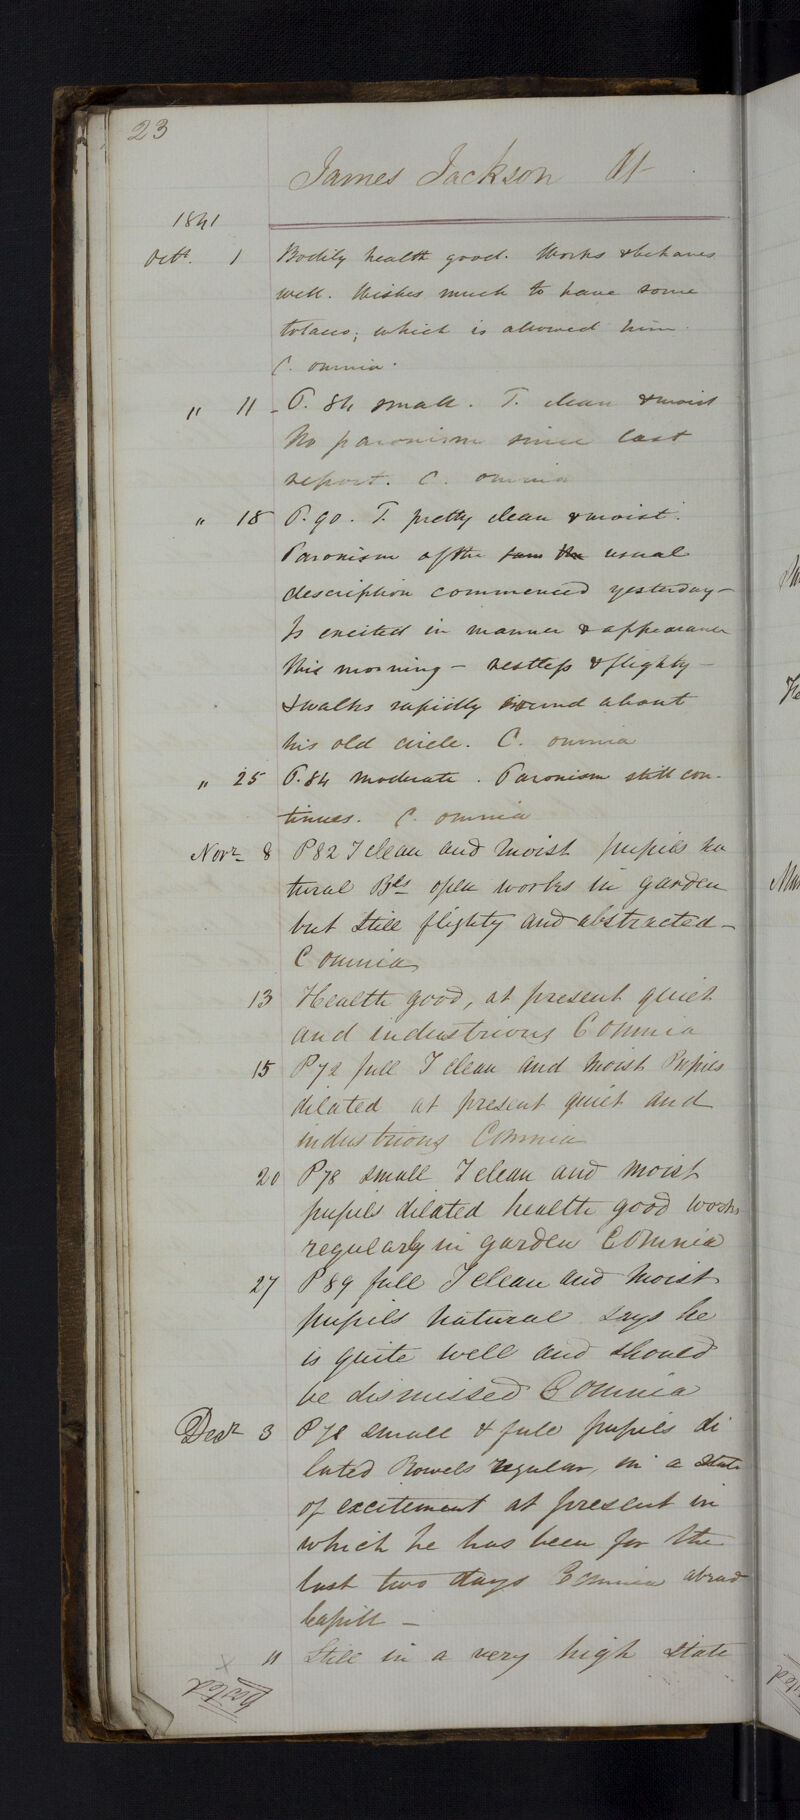 23
James Jackson
1841
Octr. 1 Bodily health good. Works & behaves
well. Wishes much to have some
tobacco; which is allowed him.
C. omnia.
" 11 - P. 84 small. T. clean & moist
No paroxism since last
report. C. omnia
" 18 P. 90. T. pretty clean & moist.
Paroxism of the usual
description commenced yesterday -
Is excited in manner & appearance
this morning - restless & flighty -
& walks rapidly round about
his old circle. C. omnia
" 25 P. 84 moderate. Paroxism still con-
tinues. C. omnia
Novr 8 P 82 T clean and moist pupils na
tural Bls open works in garden
but still flighty and abstracted -
C omnia
13 Health good, at present quiet
and industrious C omnia
15 P 72 full T clean and moist Pupils
dilated at present quiet and
industrious C omnia
20 P 78 small T clean and moist
pupils dilated health good works
regularly in garden C Omnia
27 P 89 full T clean and moist
pupils natural says he
is quite well and should
be dismissed C omnia
Decr 3 P 78 small & full pupils di
lated Bowels regular, in a state
of excitement at present in
which he has been for the
last two days C omnia abrad
Capill -
" Still in a very high state
posted